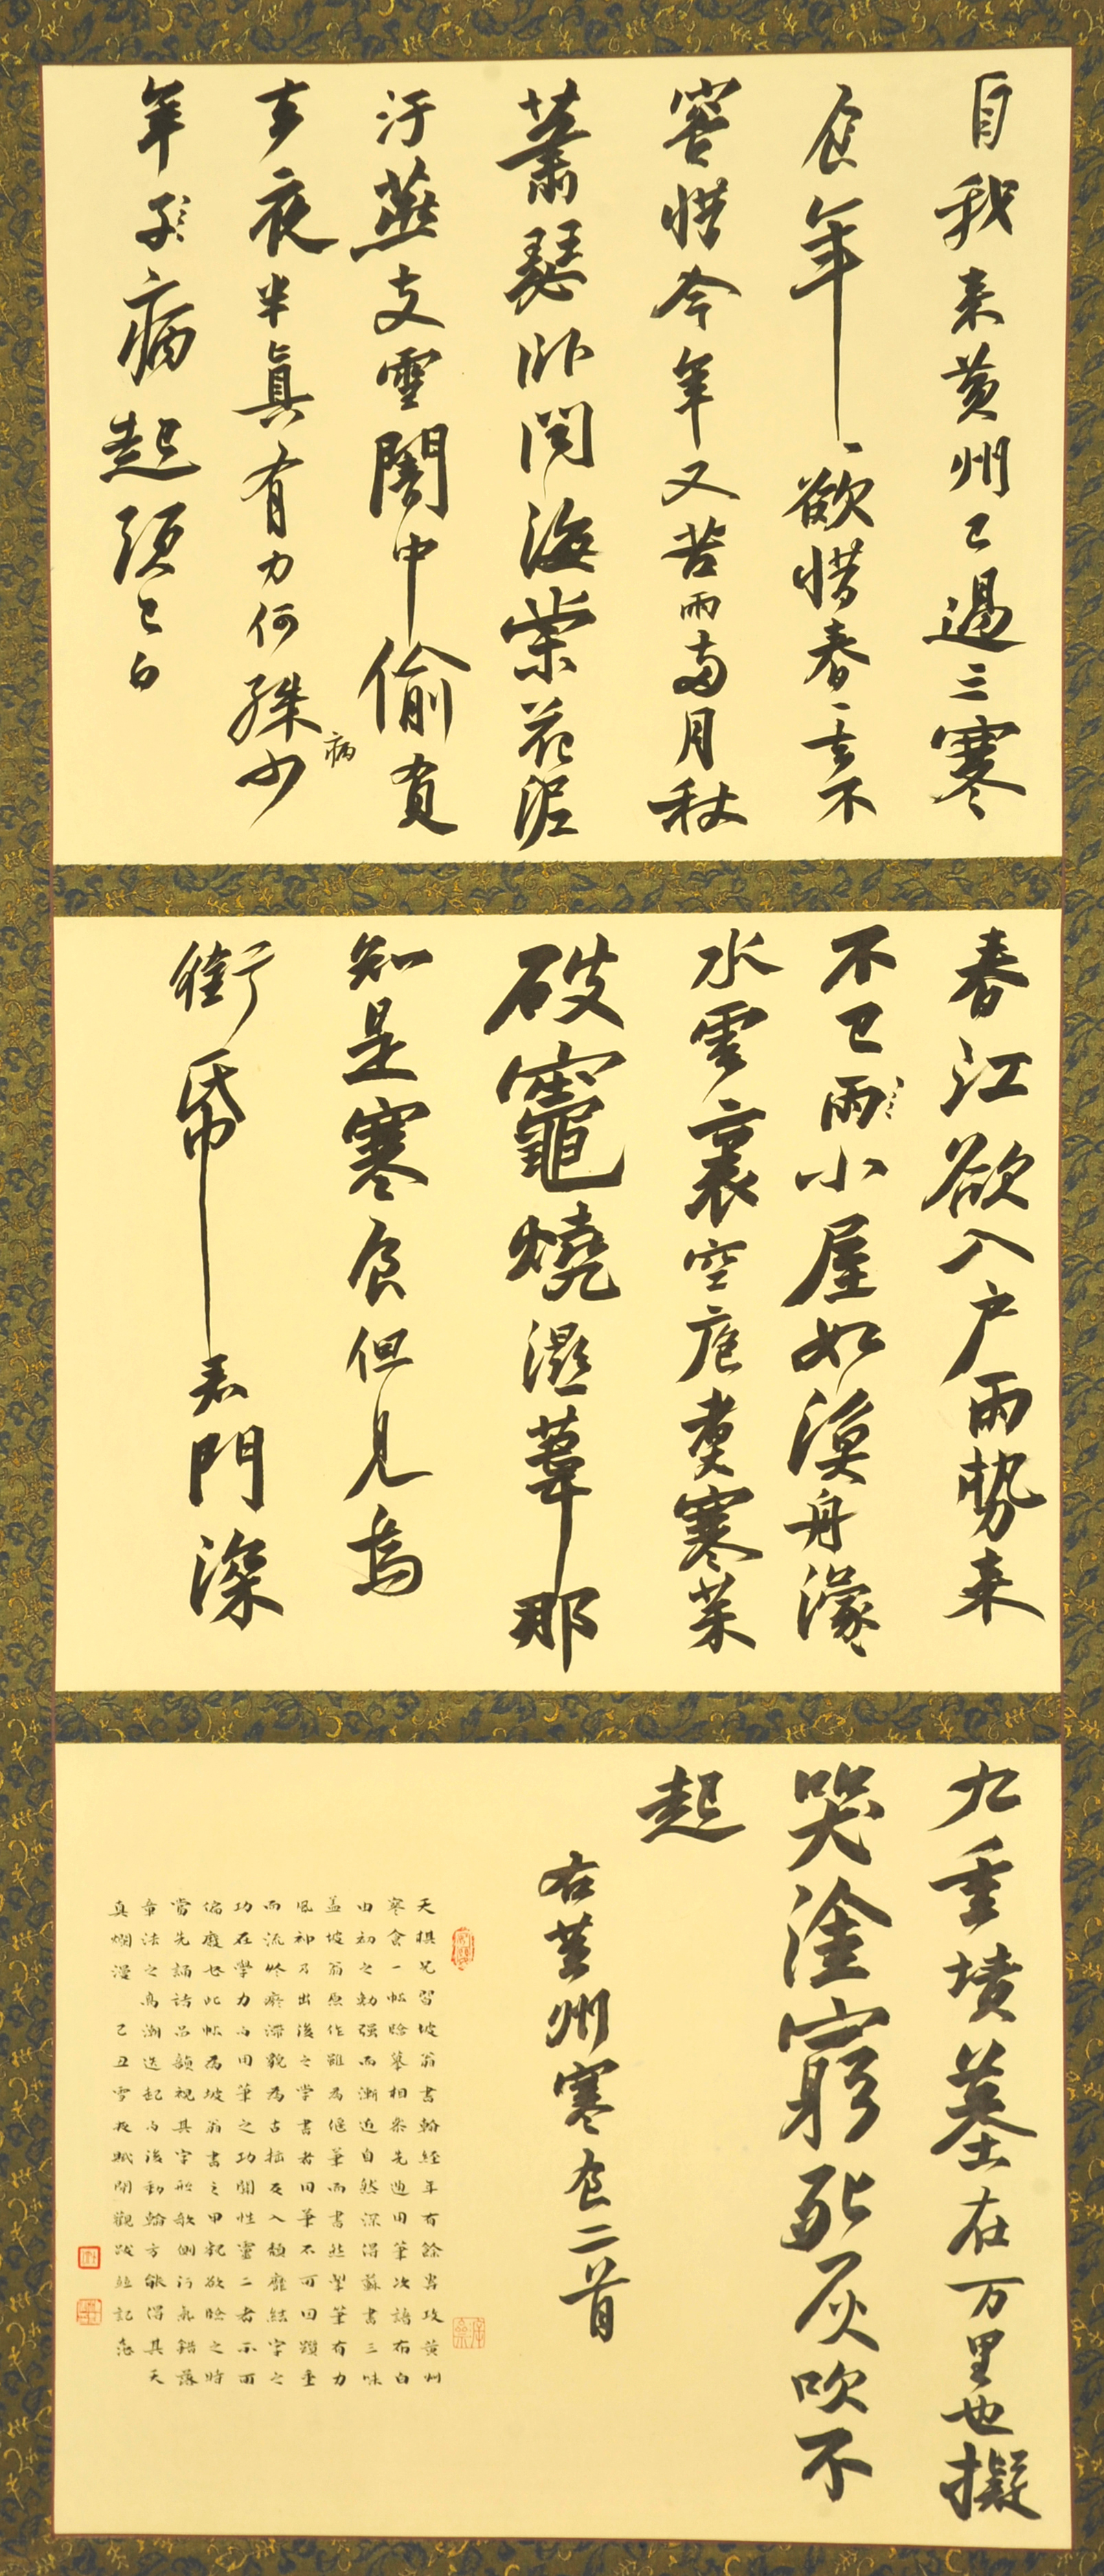 自我来黄州已過三寒
食年〻欲惜春〻去不
容惜今年又苦雨兩月秋
蕭瑟卧聞海棠花泥
汙燕支雪闇中偷負
去夜半真有力何殊少
病
年子病起頭已白
春江欲入户雨勢来
不已雨小屋如漁舟濛〻
水雲裏空庖煮寒菜
破竈燒濕葦那
知是寒食但見烏
銜帋君門深
九重墳墓在万里也擬
哭塗窮死灰吹不
起
右黄州寒食二首
天祺兄習坡翁書翰經年有餘嘗攻黄州
寒食一帖臨摹相參先迪用筆次諳布白
由初之勉强而漸近自然深得蘇書三味
蓋坡翁原作雖爲偃筆而書然挈筆有力
風神乃出後之學書者用筆不可囙躓重
而流於癡滯貌爲古拙反入頹靡結字之
功在學力而用筆之功關性靈二者不可
偏廢也此帖爲坡翁書之甲觀欲臨之時
當先誦詩品韻視其字形欹側行氣錯落
章法之高潮迭起而後動翰方能得其天
真爛漫 己丑雪夜賦閒觀跋並記